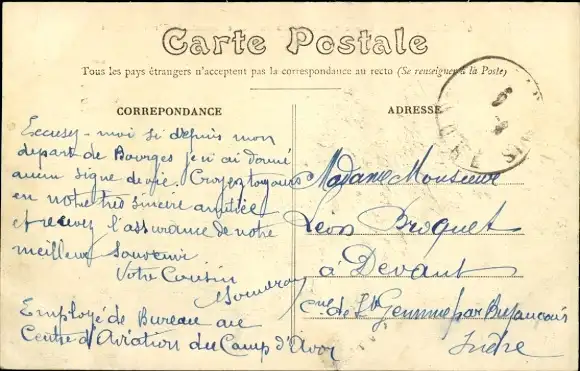 Carte Postale
Tous les pays étrangers n'acceptent pas la correspondance au recto (Se renseigner à la Poste)
CORREPONDANCE
Excusez-moi si depuis mon
départ de Bourges je n'ai donné
aucun signe de vie. Croyez toujours
en notre très sincère amitiée
et recevez l'assurance de notre
meilleur souvenir
Votre Cousin
Employé de Bureau au
Centre d'Aviation du Camp d'Avor
ADRESSE
Madame Monsieur
Léon Broquet
à Devant
cne de Ste Gemme par Buzancais
Indre